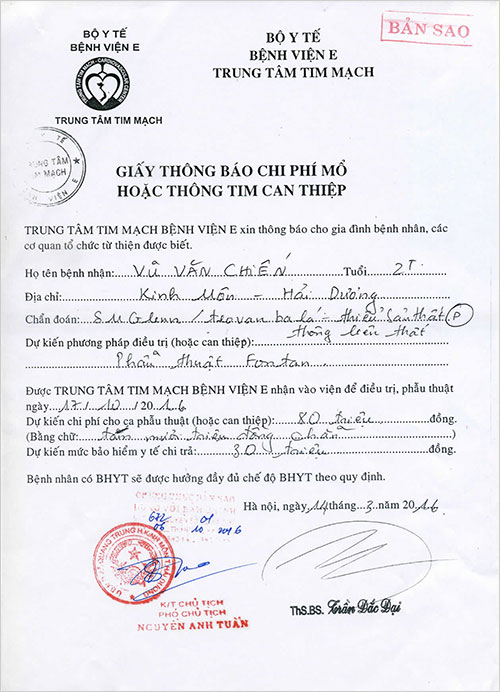 BẢN SAO
BỘ Y TẾ
BỆNH VIỆN E
TRUNG TÂM TIM MẠCH
BỘ Y TẾ
BỆNH VIỆN E
TRUNG TÂM TIM MẠCH
GIẤY THÔNG BÁO CHI PHÍ MỔ
HOẶC THÔNG TIM CAN THIỆP
TRUNG TÂM TIM MẠCH BỆNH VIỆN E xin thông báo cho gia đình bệnh nhân, các
cơ quan tổ chức từ thiện được biết.
Họ tên bệnh nhân: VŨ VĂN CHIẾN Tuổi 2T.
Địa chỉ: Kinh Môn - Hải Dương
Chẩn đoán: SMGlenn / teo van ba lá - thiểu sản thất (P)
thông liên thất
Dự kiến phương pháp điều trị (hoặc can thiệp):
Phẫu thuật Fontan
Được TRUNG TÂM TIM MẠCH BỆNH VIỆN E nhận vào viện để điều trị, phẫu thuật
ngày 17/10/2016
Dự kiến chi phí cho ca phẫu thuật (hoặc can thiệp): 80 triệu đồng.
(Bằng chữ: tám mươi triệu đồng chẵn)
Dự kiến mức bảo hiểm y tế chi trả: 30 triệu đồng.
Bệnh nhân có BHYT sẽ được hưởng đầy đủ chế độ BHYT theo quy định.
Hà nội, ngày 14 tháng 3 năm 2016
672 01
06 10 2016
K/T CHỦ TỊCH
PHÓ CHỦ TỊCH
NGUYỄN ANH TUẤN
ThS.BS. Trần Đắc Đại